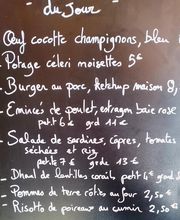 - du Jour -
Œuf cocotte champignons, bleu
Potage céleri noisettes 5€
- Burger au porc, ketchup maison 8,
- Emincés de poulet, estragon baie rose
petit 6€ grd 11€
- Salade de sardines, câpres, tomates
séchées et riz
petite 7€ grde 13€
- Dhaal de lentilles corail, petit 6€ grand
- Pommes de terre rôties au four 2,50€
- Risotto de poireaux au cumin 2,50